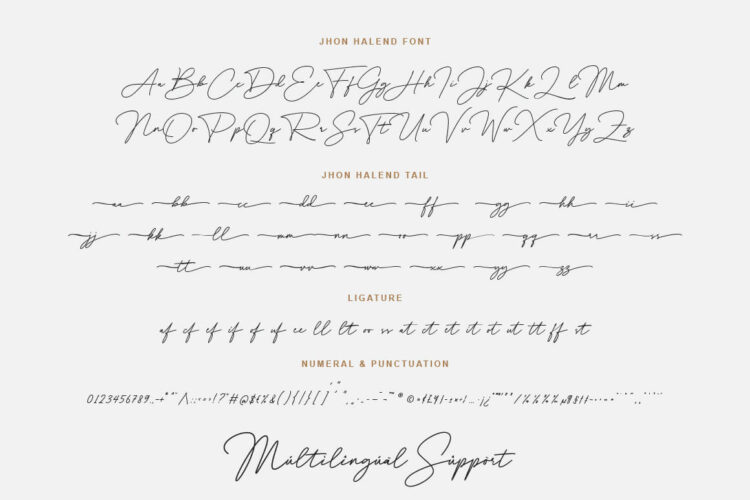 JHON HALEND FONT
Aa Bb Cc Dd Ee Ff Gg Hh Ii Jj Kk L l Mm
Nn Oo Pp Qq Rr Ss Tt Uu Vv Ww Xx Yy Zz
JHON HALEND TAIL
aa bb cc dd ee ff gg hh ii
jj kk ll mm nn oo pp qq rr ss
tt uu vv ww xx yy zz
LIGATURE
af cf ef if of uf ee ll lt oo ss at ct et it ot ut tt ff st
NUMERAL & PUNCTUATION
0123456789
Múltilingúál Súppórt